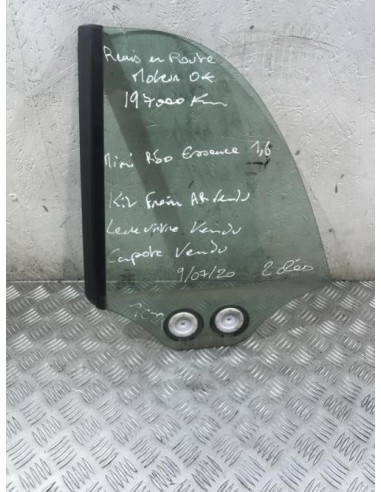 Remis en Route
Moteur OK
197000 Km
Mini R50 Essence 1,6
Kit Frein AR Vendu
Leve vitre Vendu
Capote Vendu
9/07/20 2 clés